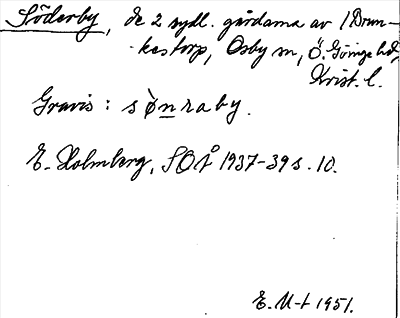 Söderby, de 2 sydl. gårdarna av 1 Drun-
kastorp, Osby sn, Ö. Göinge hd,
Krist. l.
Gravis: sønraby.
E. Holmberg, SOÅ 1937-39 s. 10.
E. M-t 1951.